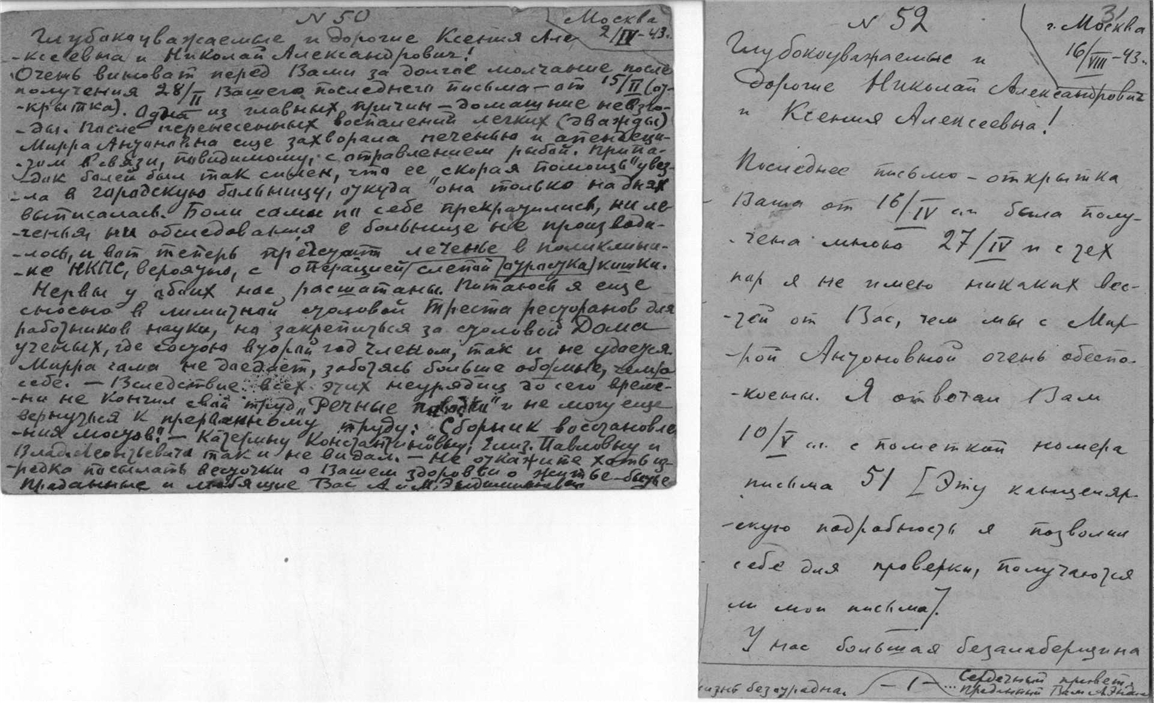 N 50
Москва
2/IV-43.
Глубокоуважаемые и дорогие Ксения Але
-ксеевна и Николай Александрович!
Очень виноват перед Вами за долгое молчание после
получения 28/II Вашего последнего письма – от 15/II (от-
-крытка). Одна из главных причин – домашние невзго-
-ды. После перенесенных воспалений легких (дважды)
Мирра Антоновна еще захворала печенью и апендеци-
-том в связи, повидимому, с отравлением рыбой. Припа-
-док болей был так силен, что ее "скорая помощь" увез-
-ла в городскую больницу, откуда она только на днях
выписалась. Боли сами по себе прекратились, ни ле-
-ченья ни обследования в больнице не производи-
-лось, и вот теперь предстоит леченье в поликлини-
-ке НКПС, вероятно, с операцией слепой (отростка) кишки.
Нервы у обоих нас расшатаны. Питаюсь я еще
сносно в лимитной столовой Треста ресторанов для
работников науки, но закрепиться за столовой Дома
ученых, где состою второй год членом, так и не удается.
Мирра сама не доедает, заботясь больше обо мне, чем о
себе. – Вследствие всех этих неурядиц до сего време-
-ни не кончил свой труд "Речные паводки" и не могу еще
вернуться к прерванному труду: "Сборник восстановле-
-ния мостов". – Катерину Константиновну, Елиз. Павловну и
так и не видал. – Не откажите хоть из-
-редка посылать весточки о Вашем здоровьи о житье-бытье
Преданные и любящие Вас А и М.
31
N 52
г. Москва
16/VIII-43г.
Глубокоуважаемые и
дорогие Николай Александрович
и Ксения Алексеевна!
Последнее письмо – открытка
Ваша от 16/IV с.г. была полу-
-чена мною 27/IV и с тех
пор я не имею никаких вес-
-тей от Вас, чем мы с Мир
-рой Антоновной очень обеспо-
-коены. Я отвечал Вам
10/V с.г. с пометкой номера
письма 51 [Эту канцеляр-
-скую подробность я позволил
себе для проверки, получаются
ли мои письма].
У нас большая безалаберщина
жизнь безотрадная
– 1 –
... Сердечный привет
Преданный Вам А.